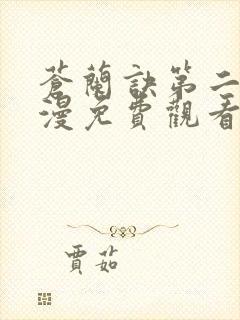 蒼蘭訣第二
漫免費觀看
賈茹